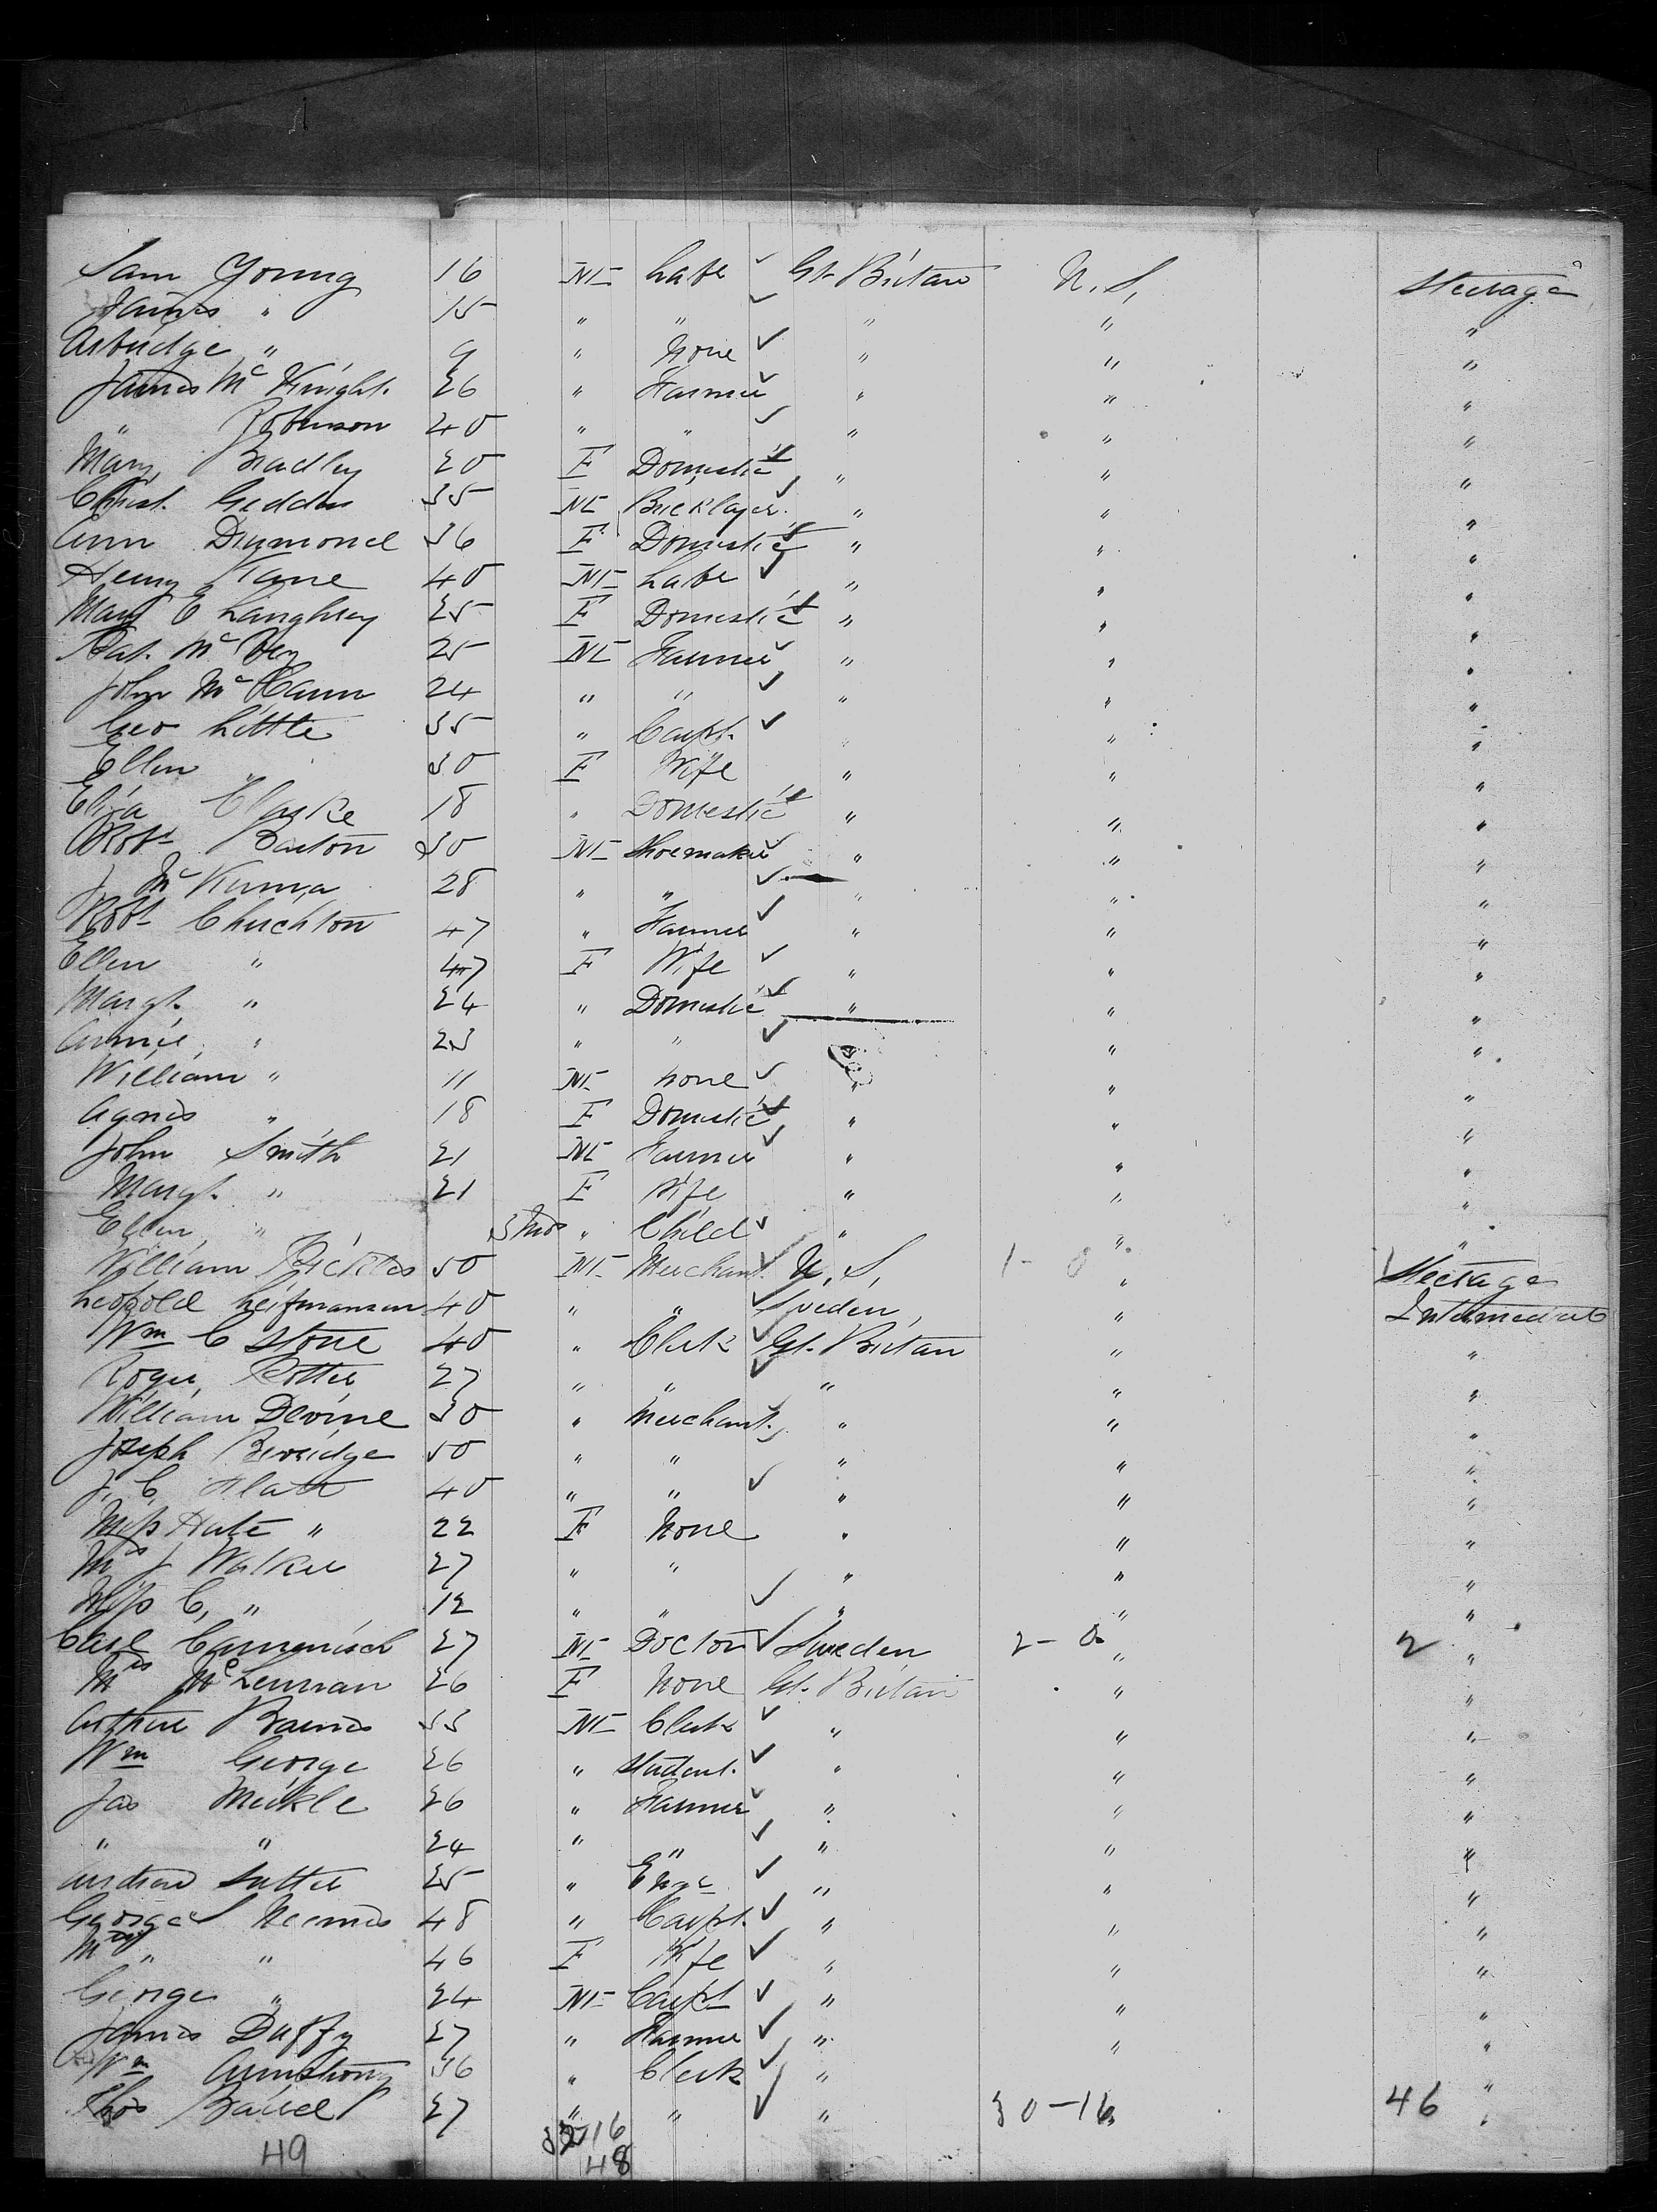 Sam Young 16 M Labr Gt Britain U. S. Steerage
James " 15 " " " " "
" 9 " None " " "
James McKnight 26 " Farmer " " "
" Robinson 40 " " " " "
Mary Bradley 20 F Domestic " " "
Christ. Geddes 35 M Bricklayer " " "
Ann Drymond 36 F Domestic " " "
Henry Kane 40 M Labr " " "
Mary E Laughrey 25 F Domestic " " "
Pat. Mc 25 M Farmer " " "
John McCann 24 " " " " "
Geo Little 35 " Carpt. " " "
Ellen " 30 F Wife " " "
Eliza Clarke 18 " Domestic " " "
Robt Barton 30 M Shoemaker " " "
J McKenna 28 " " " " "
Robt Chrichton 47 " Farmer " " "
Ellen " 47 F Wife " " "
Margt. " 24 " Domestic " " "
Annie " 23 " " " "
William " 11 M None " " "
Agnes " 18 F Domestic " " "
John Smith 21 M Farmer " " "
Margt. " 21 F Wife " " "
Ellen " 3 Mos " Child " " "
William Rickles 50 M Merchant U. S. 1-0 " Steerage
Leopold 40 " " Sweden " Intermediate
Wm C Stone 40 " Clerk Gt. Britain " "
Roger Potter 27 " " " " "
William Devine 30 " Merchant " " "
Joseph Beveridge 50 " " " " "
J. C. 40 " " " " "
Miss Kate " 22 F None " " "
Mrs J Walker 27 " " " " "
Miss C. " 12 " " " " "
Carl Camenisch 27 M Doctor Sweden 2-0 " 2 "
Mrs McLennan 26 F None Gt. Britain " "
Arthur Barnes 33 M Clerk " " "
Wm George 26 " Student " " "
Jas Meikle 26 " Farmer " " "
" " 24 " " " " "
Andrew Sutter 25 " Engr " " "
George S 48 " Carpt. " " "
Mrs " " 46 F Wife " " "
George " 24 M Carpt " " "
James Duffy 27 " Farmer " " "
Wm Armstrong 36 " Clerk " " "
Thos Baird 27 " " " 30-16 " 46 "
49 16
48